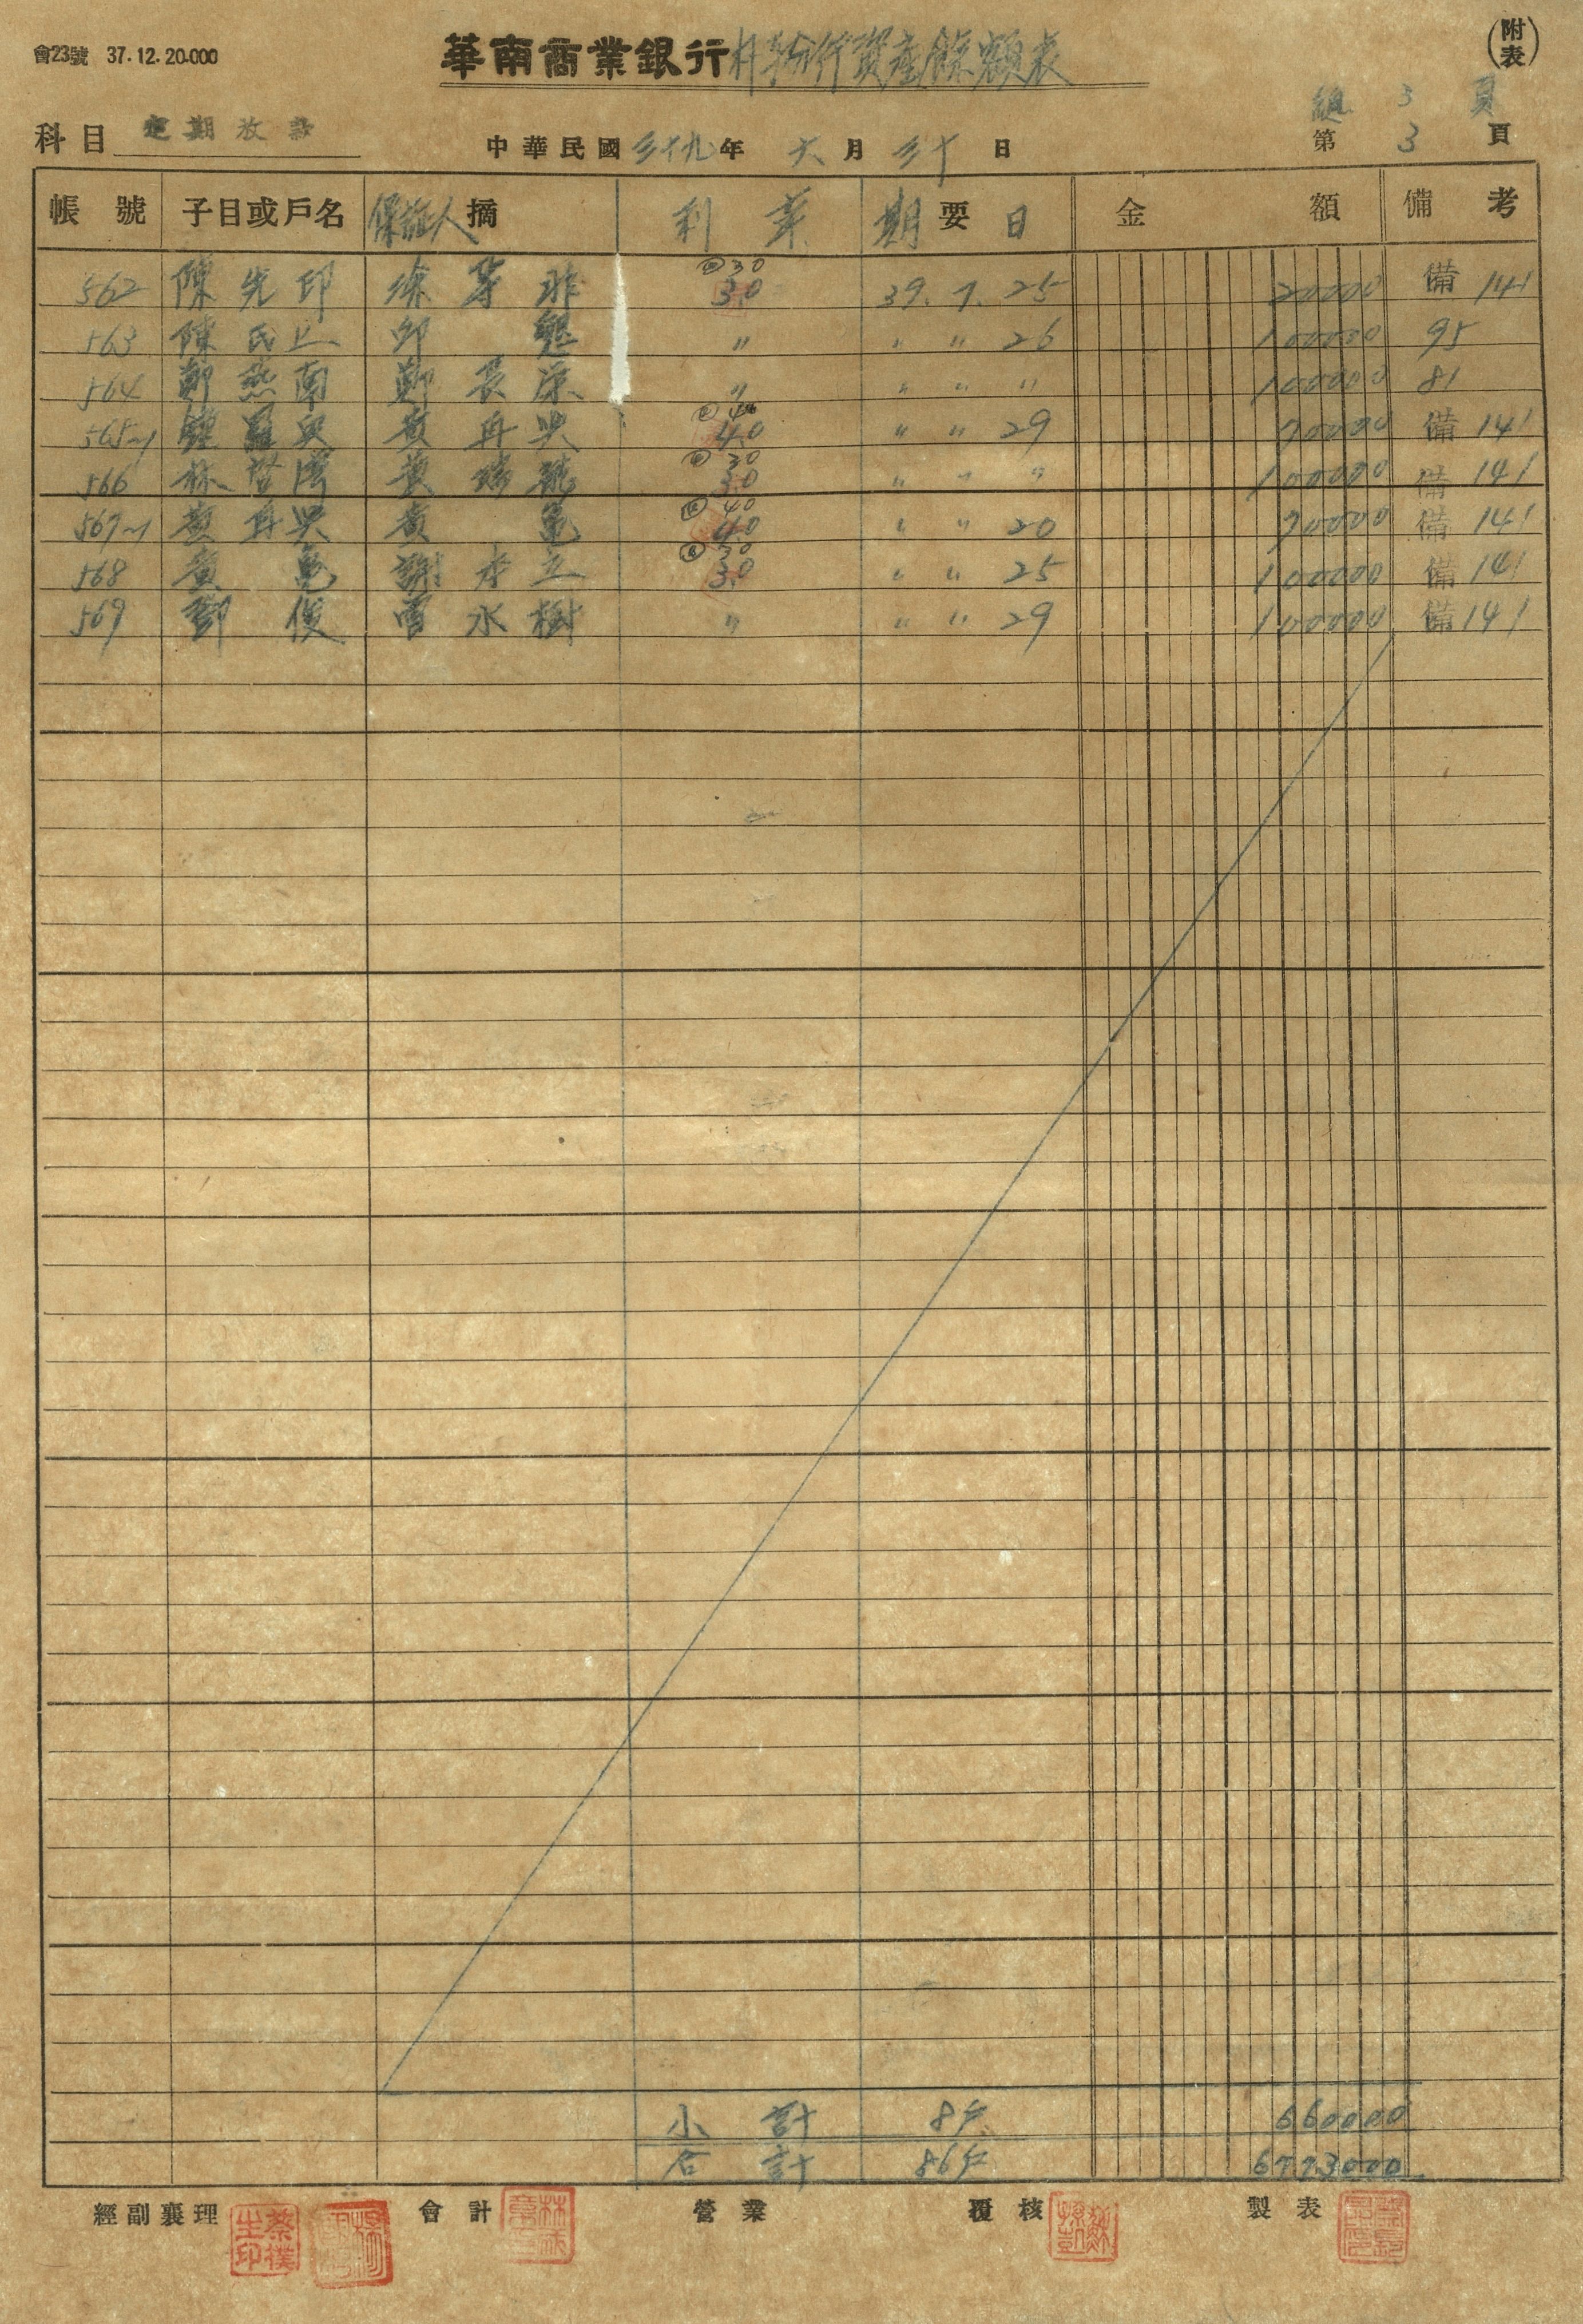 會23號 37.12.20.000
華南商業銀行朴子分行資產餘額表
(附表)
總 3 頁
科目 定期放款 中華民國三十九年 六月 三十日 第 3 頁
帳號 子目或戶名 保證人 摘 利率 期 要 日 金額 備考
562 陳先印 徐 30 3.0 39.7.25 20000 備 141
563 陳氏 邱魁 〃 〃 〃 26 100000 95
564 鄭燕南 鄭長 〃 〃 〃 〃 100000 81
565-1 鍾羅 黃再興 40 4.0 〃 〃 29 70000 備 141
566 林啓 黃 30 3.0 〃 〃 〃 100000 備 141
567-1 黃再興 黃龜 40 4.0 〃 〃 20 70000 備 141
568 黃龜 謝立 30 3.0 〃 〃 25 100000 備 141
569 鄧俊 曾水樹 〃 〃 〃 29 100000 備 141
小計 8戶 660000
合計 86戶 6773000
經副襄理 會計 營業 覆核 製表